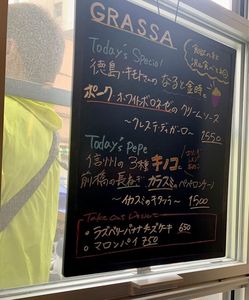 GRASSA
Today's Special
徳島・キモトさんの なると金時と
ポーク・ホワイトボロネーゼの クリームソース
〜クレステ・ディ・ガーロ〜
1550
Today's pepe
信州の 3種 キノコと
前橋の 長ねぎ カラスミの ペペロンチーノ
〜イカスミのキタッラ〜 1500
Take out Dessert
・ラズベリーバナナチーズケーキ 650
・マロンパイ 750